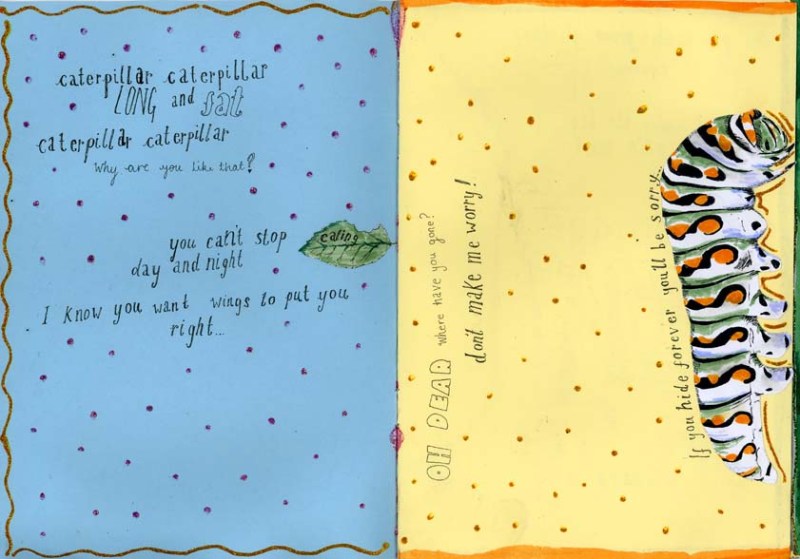 caterpillar caterpillar
LONG and fat
caterpillar caterpillar
Why are you like that?
you can't stop eating
day and night
I know you want wings to put you
right...
OH DEAR where have you gone?
don't make me worry!
If you hide forever you'll be sorry